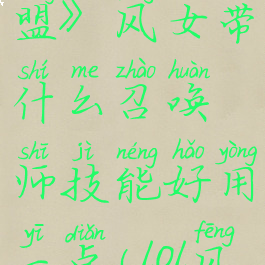 盟》风女带
shí me zhào huàn
什么召唤
shī jì néng hǎo yòng
师技能好用
yī diǎn fēng
一点(lol风